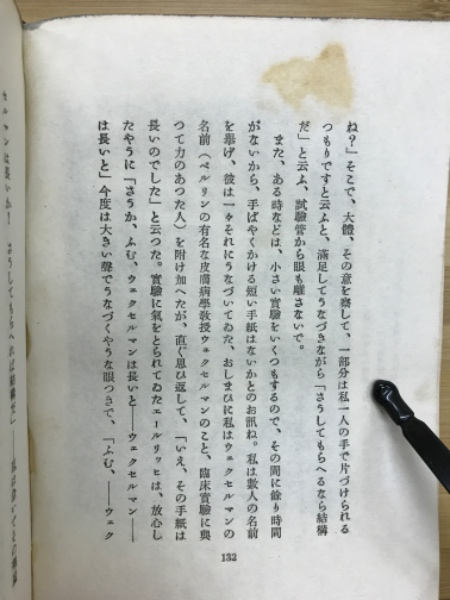 ね？」そこで、大體、その意を察して、一部分は私一人の手で片づけられる
つもりですと云ふと、滿足してうなづきながら「さうしてもらへるなら結構
だ」と云ふ、試驗管から眼も離さないで。
また、ある時などは、小さい實驗をいくつもするので、その間に餘り時間
がないから、手ばやくかける短い手紙はないかとのお訊ね。私は數人の名前
を擧げ、彼は一々それにうなづいてゐた、おしまひに私はウェクセルマンの
名前（ベルリンの有名な皮膚病學敎授ウェクセルマンのこと、臨床實驗に與
つて力のあつた人）を附け加へたが、直ぐ思ひ返して、「いえ、その手紙は
長いのでした」と云つた。實驗に氣をとられてゐたエールリッヒは、放心し
たやうに「さうか、ふむ、ウェクセルマンは長いと――ウェクセルマン――
は長いと」今度は大きい聲でうなづくやうな眼つきで、「ふむ、――ウェク
132
マンは長いか！　さうしてもらへれば結構だ」